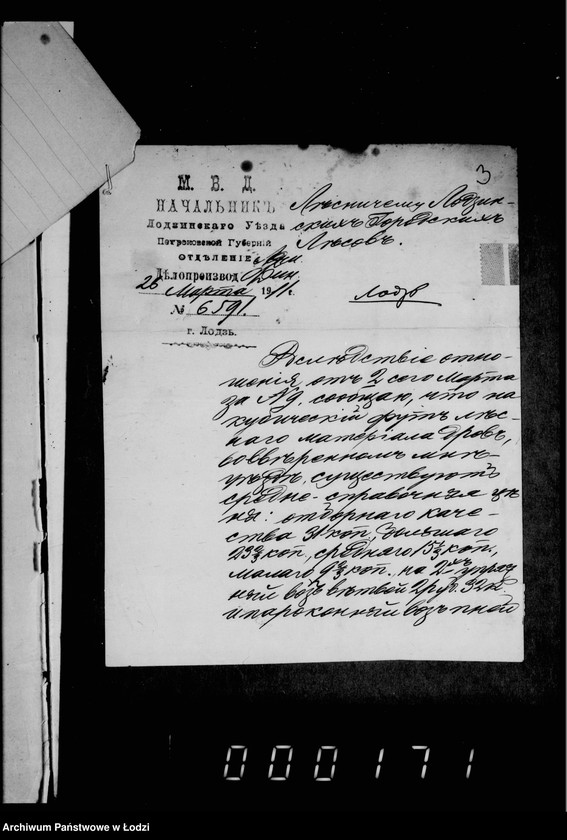 3
М. В. Д.
НАЧАЛЬНИКЪ
Лодзинскаго Уѣзда
Петроковской Губерніи
ОТДѢЛЕНІЕ Адм.
Дѣлопроизвод Фин.
26 Марта 1911 г.
№ 6591.
г. Лодзь.
Лѣсничему Лодзин-
скихъ Городскихъ
Лѣсовъ.
Лодзь
Вслѣдствіе отно-
шенія отъ 2 сего Марта
за № сообщаю, что на
кубическій футъ лѣс-
наго матеріала дровъ,
во ввѣренномъ мнѣ
уѣздѣ, существуютъ
средне-справочныя цѣ-
ны: отборнаго каче-
ства 31 коп., большаго
23 коп., средняго 15½ коп.,
малаго коп., на 2
ный возъ вѣтвей 2 руб. 32 к.
и пароконный возъ пней
000171
Archiwum Państwowe w Łodzi